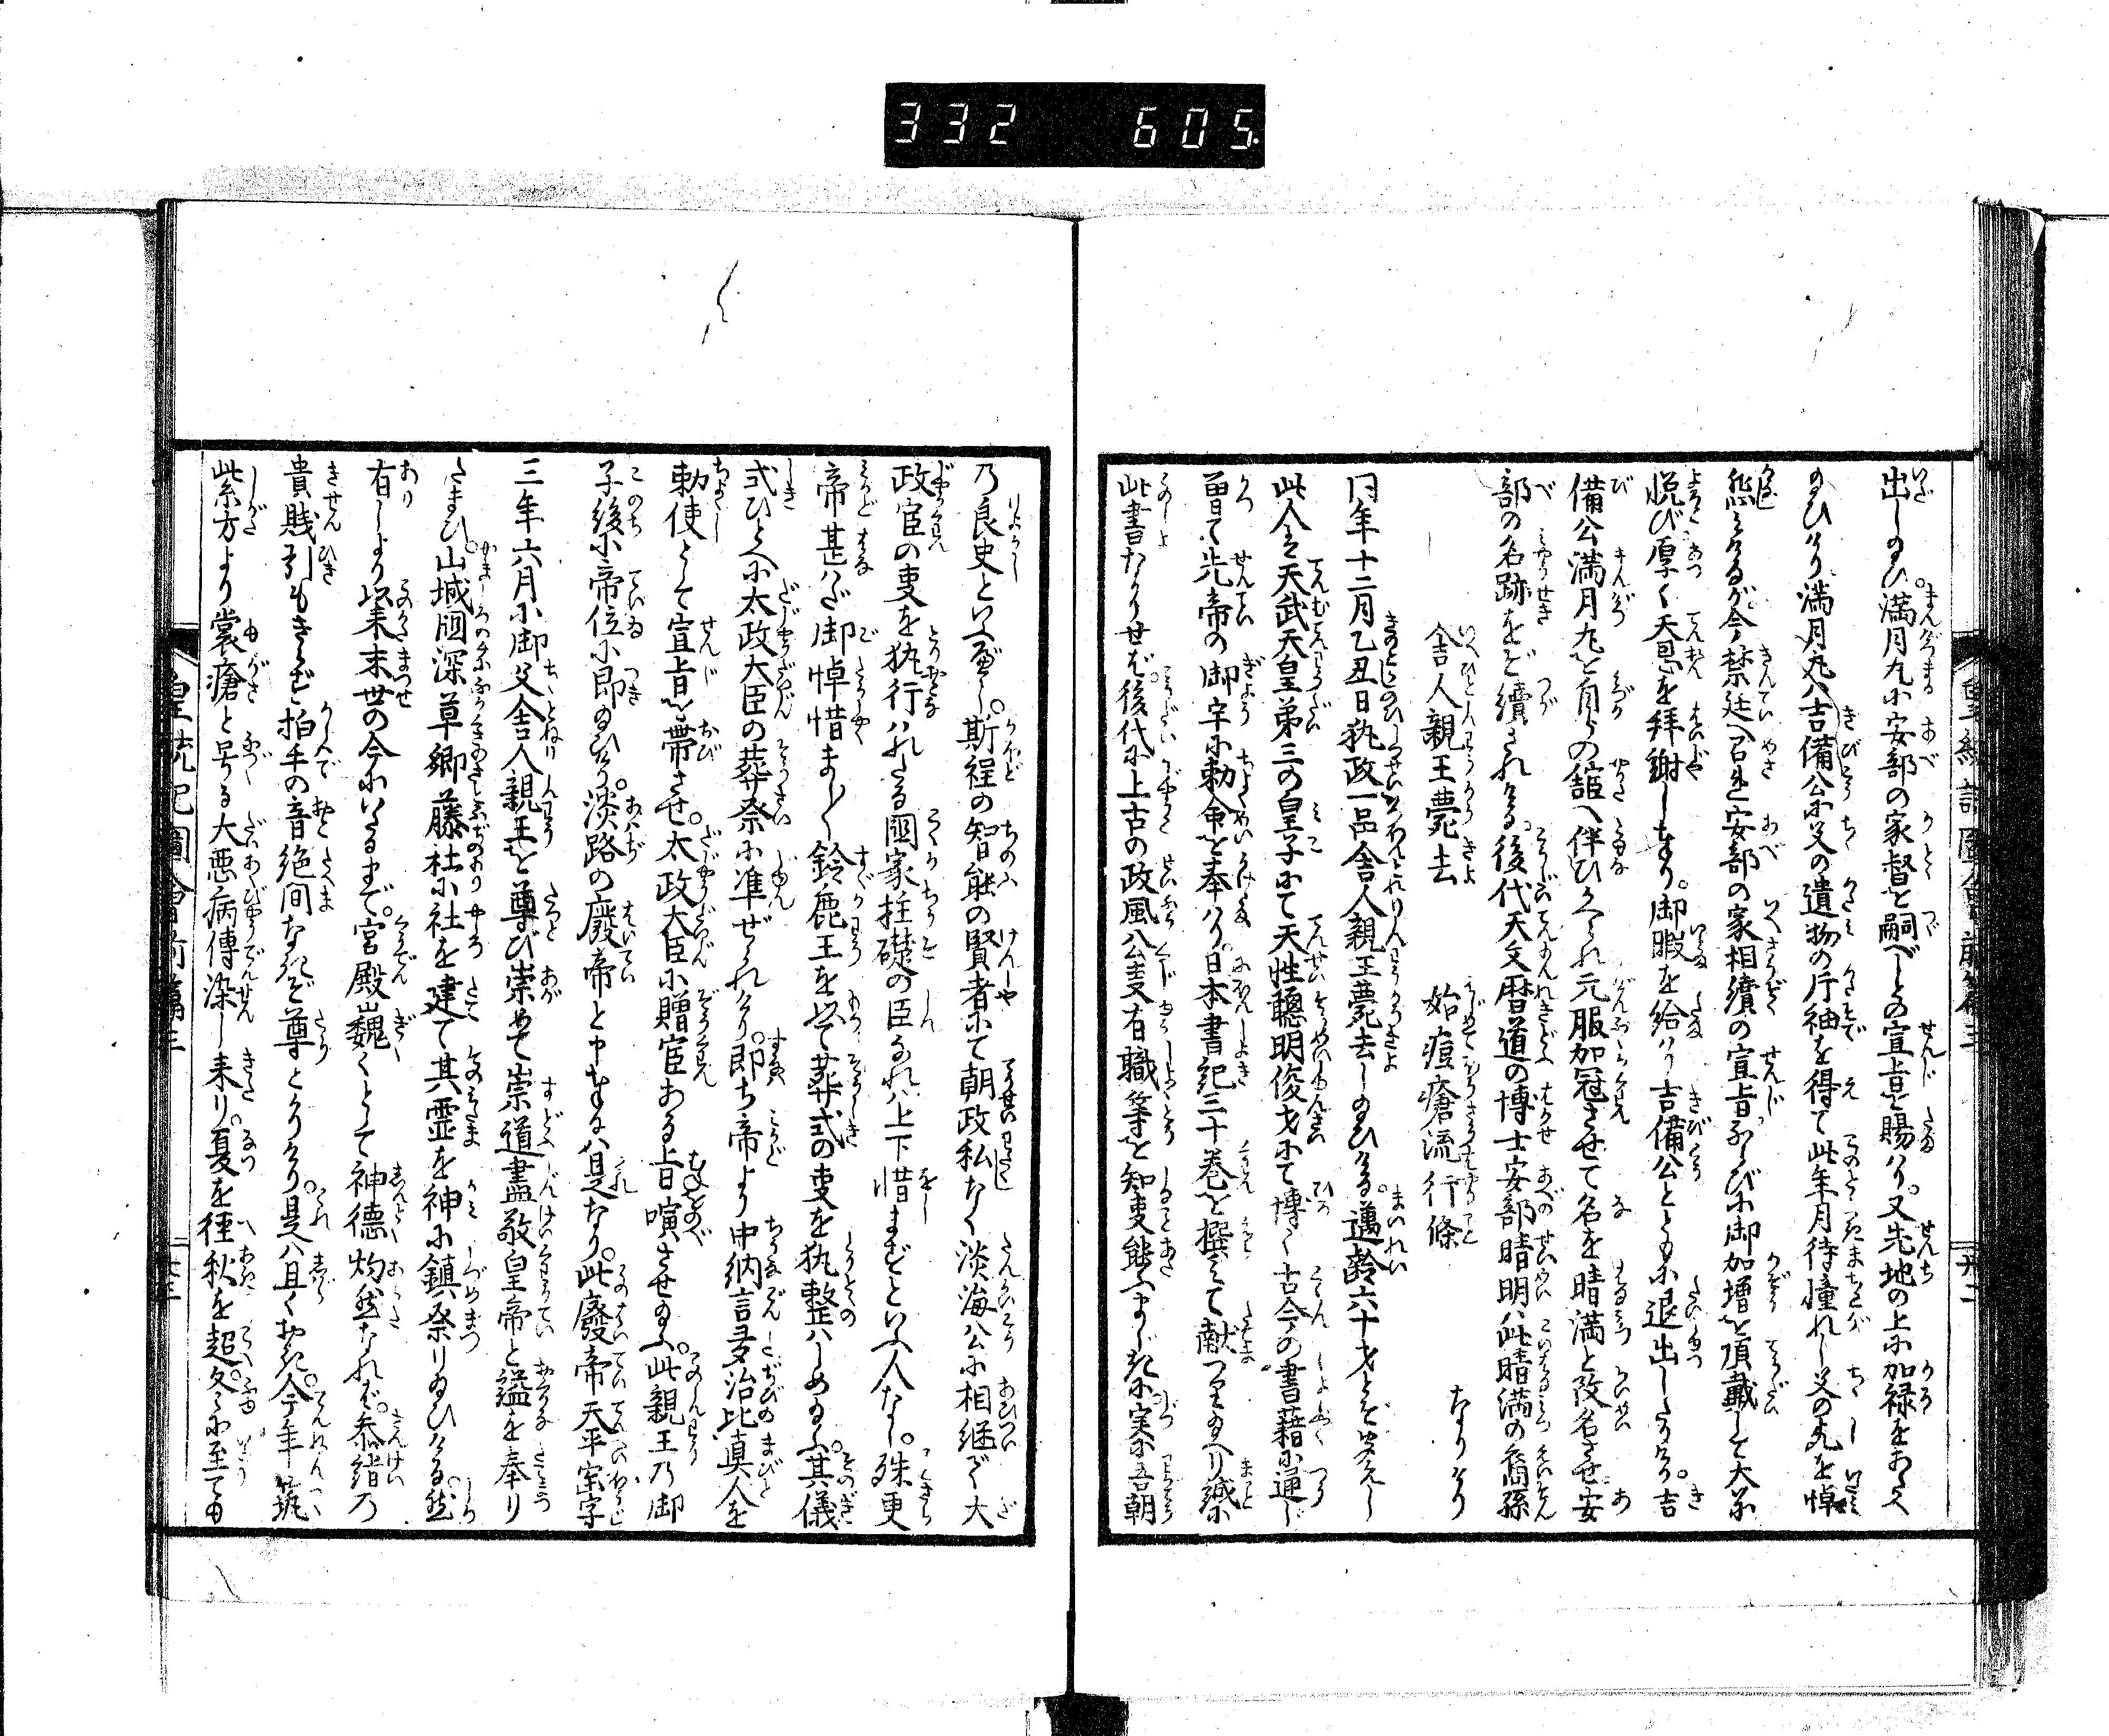 332 605
出し給ひ。満月丸に安部の家督を嗣べしとの宣旨を賜はり。又先地の上に加禄をあたへ
給ひけり満月丸は吉備公に父の遺物の片袖を得て此年月待憧れし父の死を悼
熊みけるが。今禁廷へ召出され安部の家相續の宣旨ならびに御加増を頂戴して大に
悦び厚く天恩を拝謝し奉り。御暇を給はり吉備公とともに退出したりけり。吉
備公満月丸を自らの舘へ伴ひかへられ元服加冠させて名を晴満と改名させ。安
部の名跡をぞ續されける。後代天文暦道の博士安部晴明は此晴満の裔孫
なりけり
舎人親王薨去 始痘瘡流行條
同年十二月乙丑日執政一品舎人親王薨去し給ひける。邁齢六十才とぞ聞えし
此人は天武天皇第三の皇子にて天性聰明俊才にて博く古今の書籍に通じ
曽て先帝の御宇に勅命を奉はり。日本書紀三十巻を撰みて献つり給へり誠に
此書なかりせば。後代に上古の政風公事有職等を知事能ふまじきに実に吾朝
乃良史といふべし。斯程の智能の賢者にて朝政私なく淡海公に相継で大
政官の事を執行はれたる國家柱礎の臣なれば上下惜まずといふ人なし。殊更
帝甚はだ御悼惜まし〳〵鈴鹿王を以て葬式の事を執整はしめ給ふ。其儀
式ひとへに太政大臣の葬祭に准ぜられけり。即ち帝より中納言多治比真人を
勅使として宣旨を帯させ。太政大臣に贈官ある旨喧させ給ふ。此親王乃御
子後に帝位に即給ひけり。淡路の廢帝と申奉るは是なり。此廢帝天平宝字
三年六月に御父舎人親王を尊び崇めて崇道盡敬皇帝と謚を奉り
たまひ。山城國深草郷藤社に社を建て其霊を神に鎮祭り給ひける。然
有しより以来末世の今にいたるまで。宮殿巍々として神徳灼然なれば。参詣乃
貴賤引もきらず拍手の音絶間なくぞ尊とかりけり。是は且く措。今年筑
紫方より裳瘡と号る大悪病傳染し来り。夏を径秋を超冬に至ても
皇統記圖會前篇三